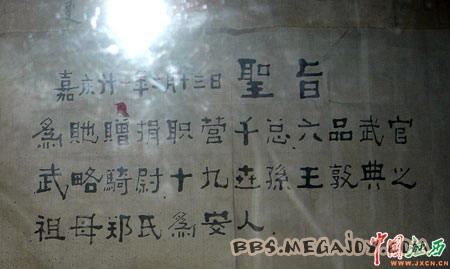 嘉庆廿一年十月十三日 聖旨
為貤贈捐职营千总六品武官
武略騎尉十九世孫王敦典之
祖母郑氏為安人
BBS.MEGAJOY.COM
中国江西
WWW.JXCN.CN